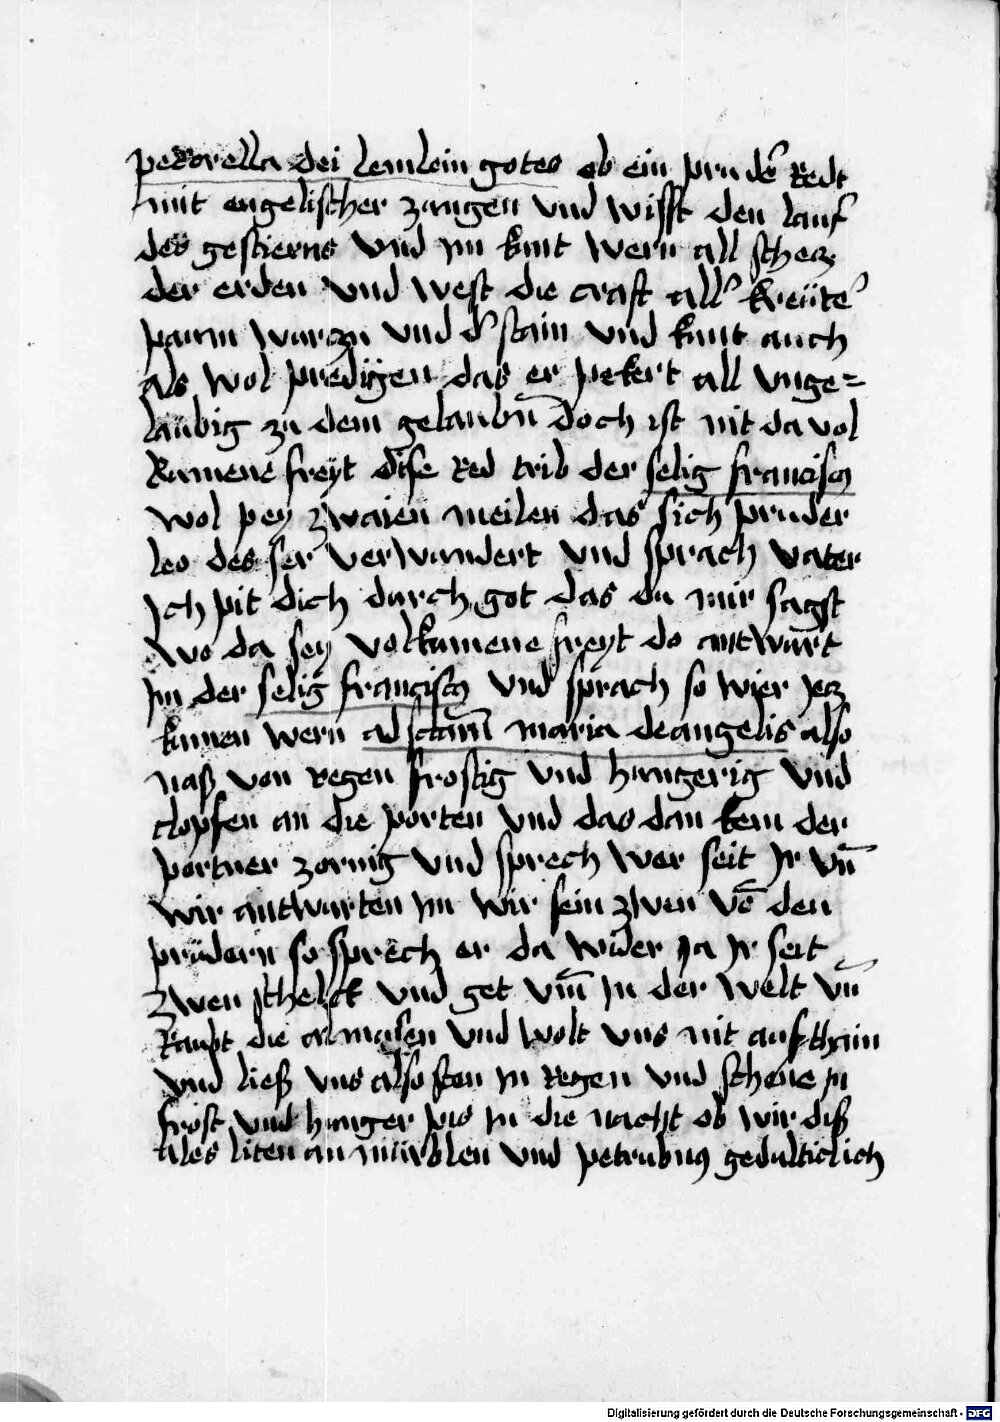 pecorella dei lemlein gotes ob ein prude᷑ Redt
mit engelischer zungen vnd wisst den lauf
des gestierns vnd im kunt wern all schecz
der erden vnd west die craft all᷑ kreüte᷑
paum wurzn vnd d᷑ stain vnd kunt auch
als wol predigen das er pekert all vnge=
laubig zu dem gelaubn̄ doch ist nit da vol
kumene freyt dise Red trib der selig francisch
wol pey zwaien meilen das sich pruder
leo des ser verwundert vnd sprach vater
Jch pit dich durch got das du mir sagst
wo da sey volkumene freyt do antwurt
Im der selig francisch vnd sprach so wier Jecz
kumen wern ad sctam̄ maria deangelis also
naß von regen frostig vnd hungerig vnd
clopfen an die porten vnd das dan kem der
portner zornig vnd sprech wer seit Jr vn̄
wir antwurten Im wir sein zwen vō den
prüdern so sprech er da wider Ja Jr seit
zwen schelck vnd get vm̄ In der welt vn̄
Raubt die almusen vnd wolt vns nit aufthuin
vnd ließ vns also sten In regen vnd schene In
frost vnd hunger pis In die nacht ob wir diß
ales liten an vnd petrubnus gedulticlich
Digitalisierung gefördert durch die Deutsche Forschungsgemeinschaft - DFG